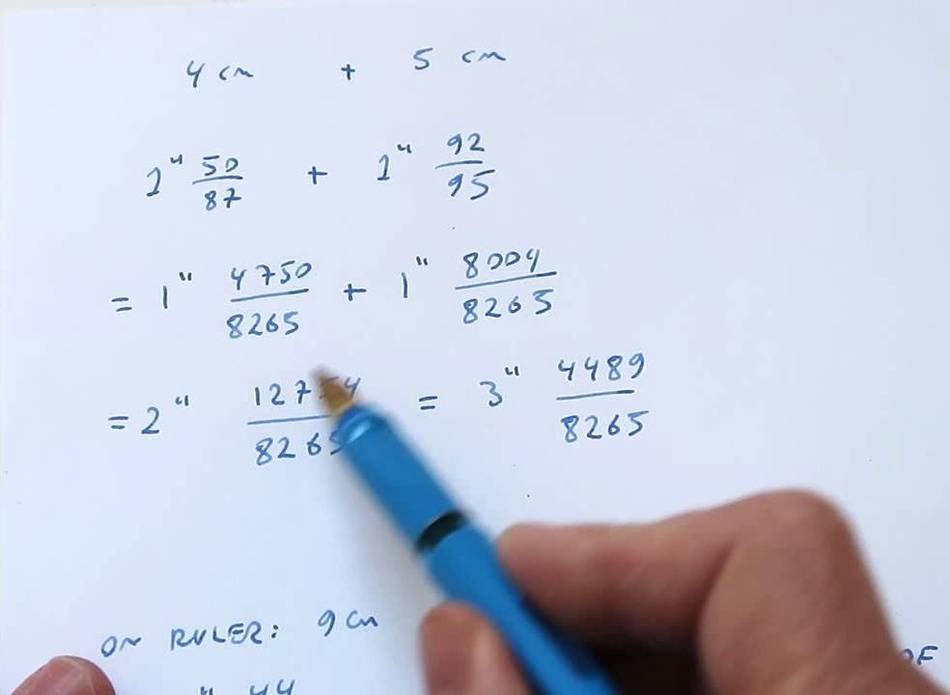 4 cm + 5 cm
1" 50/87 + 1" 92/95
= 1" 4750/8265 + 1" 8004/8265
= 2" 12754/8265 = 3" 4489/8265
ON RULER: 9 cm
" 44 OF